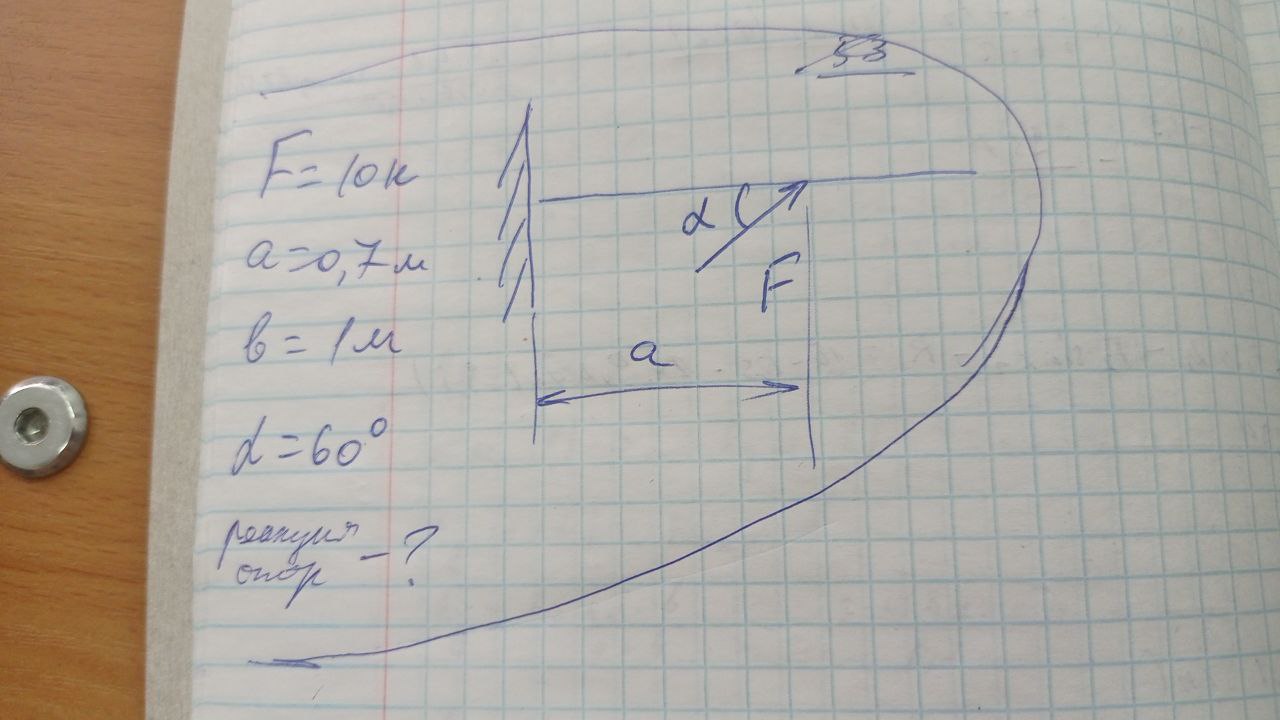 53
F=10н
a=0,7м
в=1м
α=60°
реакция
опор -?
α
F
a